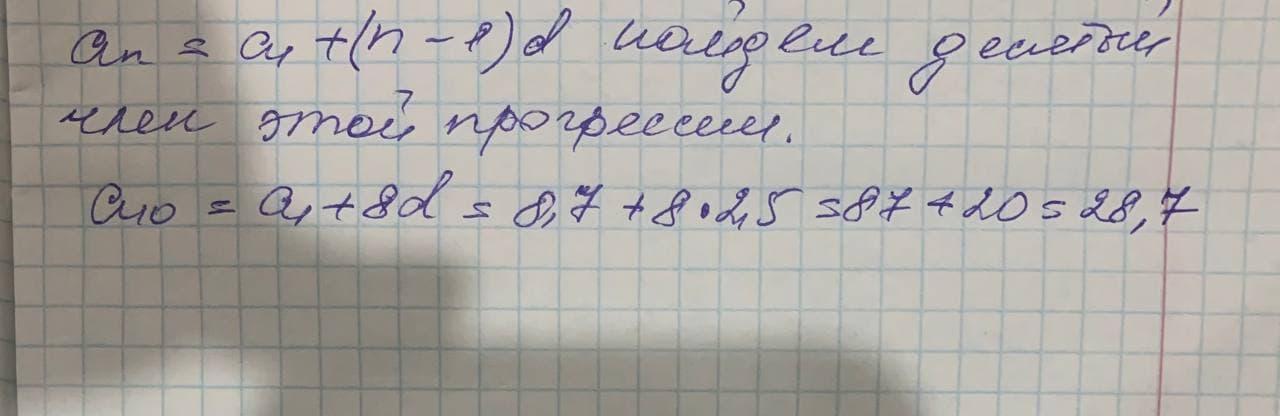 an = a1 + (n - 1)d найдем десятый
член этой прогрессии.
a10 = a1 + 8d = 8,7 + 8 · 2,5 = 87 + 20 = 28,7